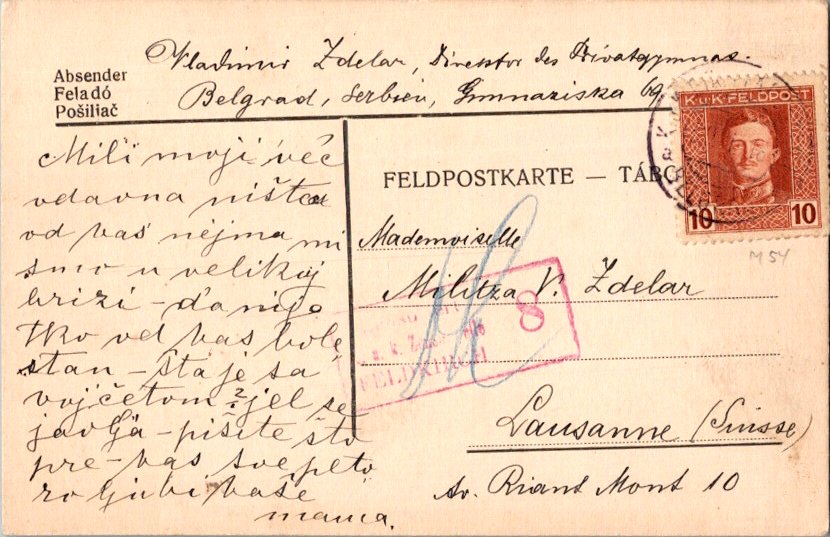 Absender
Feladó
Pošiljač
Vladimir Zdelar, Direktor des Privatgymnas.
Belgrad, Serbien, Gimnaziska 69
K.u.K. FELDPOST
10 10
FELDPOSTKARTE — TÁBO
M 54
Mademoiselle
Militza V. Zdelar
8
FELDKIRCH
Lausanne (Suisse)
Av. Riant Mont 10
Mili moji već
odavna ništa
od vas nejma mi
smo u velikoj
brizi – da nije
tko od vas bole
stan – šta je sa
vojčetom? jel se
javlja – pišite što
pre – vas sve peto
ro ljubi vaše
mama.